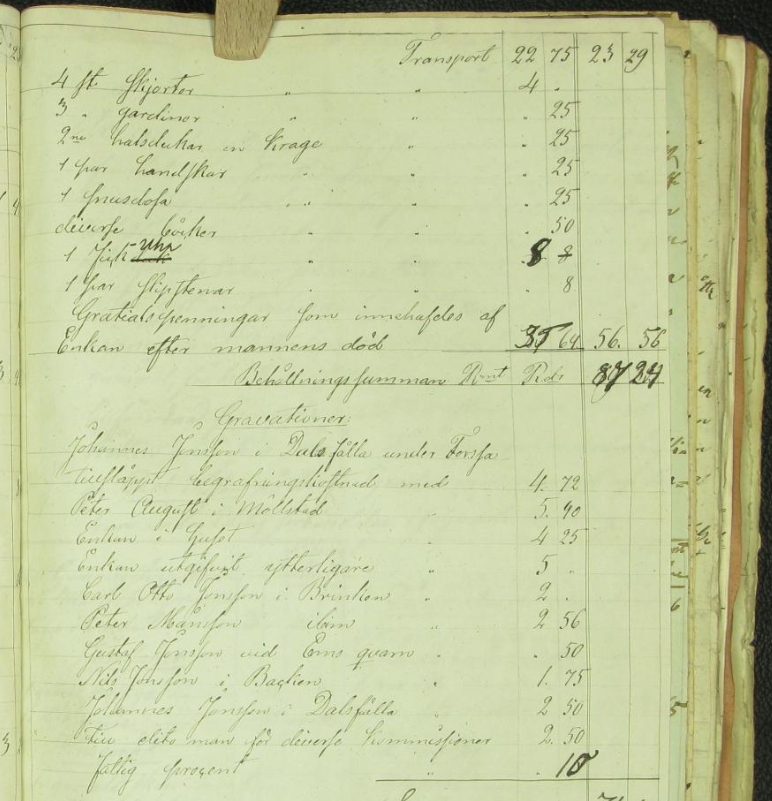 Transport 22 75 23 29
4 st. Skjortor " " 4 .
3 " gardiner " " . 25
2ne halsdukar en Krage " . 25
1 par handskar " " . 25
1 snusdosa " " . 25
diverse böcker " " . 50
1 Fick Uhr " " 8 8
1 par slipstenar " " . 8
Gratialspenningar som innehafdes af
Enkan efter mannens död 35 64 56. 56
Behållnings summan Rmt Rdr 87 24
Gravationer:
Johannes Jonsson i Dalsfälla under Forssa
tillsläppt begrafningskostnad med 4. 72
Peter August i Möllstad " 5. 40
Enkan i huset " 4 25
Enkan utgifvit ytterligare " 5 "
Carl Otto Jonsson i Brinken " 2 .
Peter Månsson ibim " 2 56
Gustaf Jonsson vid Ems quarn " . 50
Nils Jonsson i Backen " 1. 75
Johannes Jonsson i Dalsfälla " 2 50
Till dito man för diverse kommissioner 2. 50
fattig procent " . 10